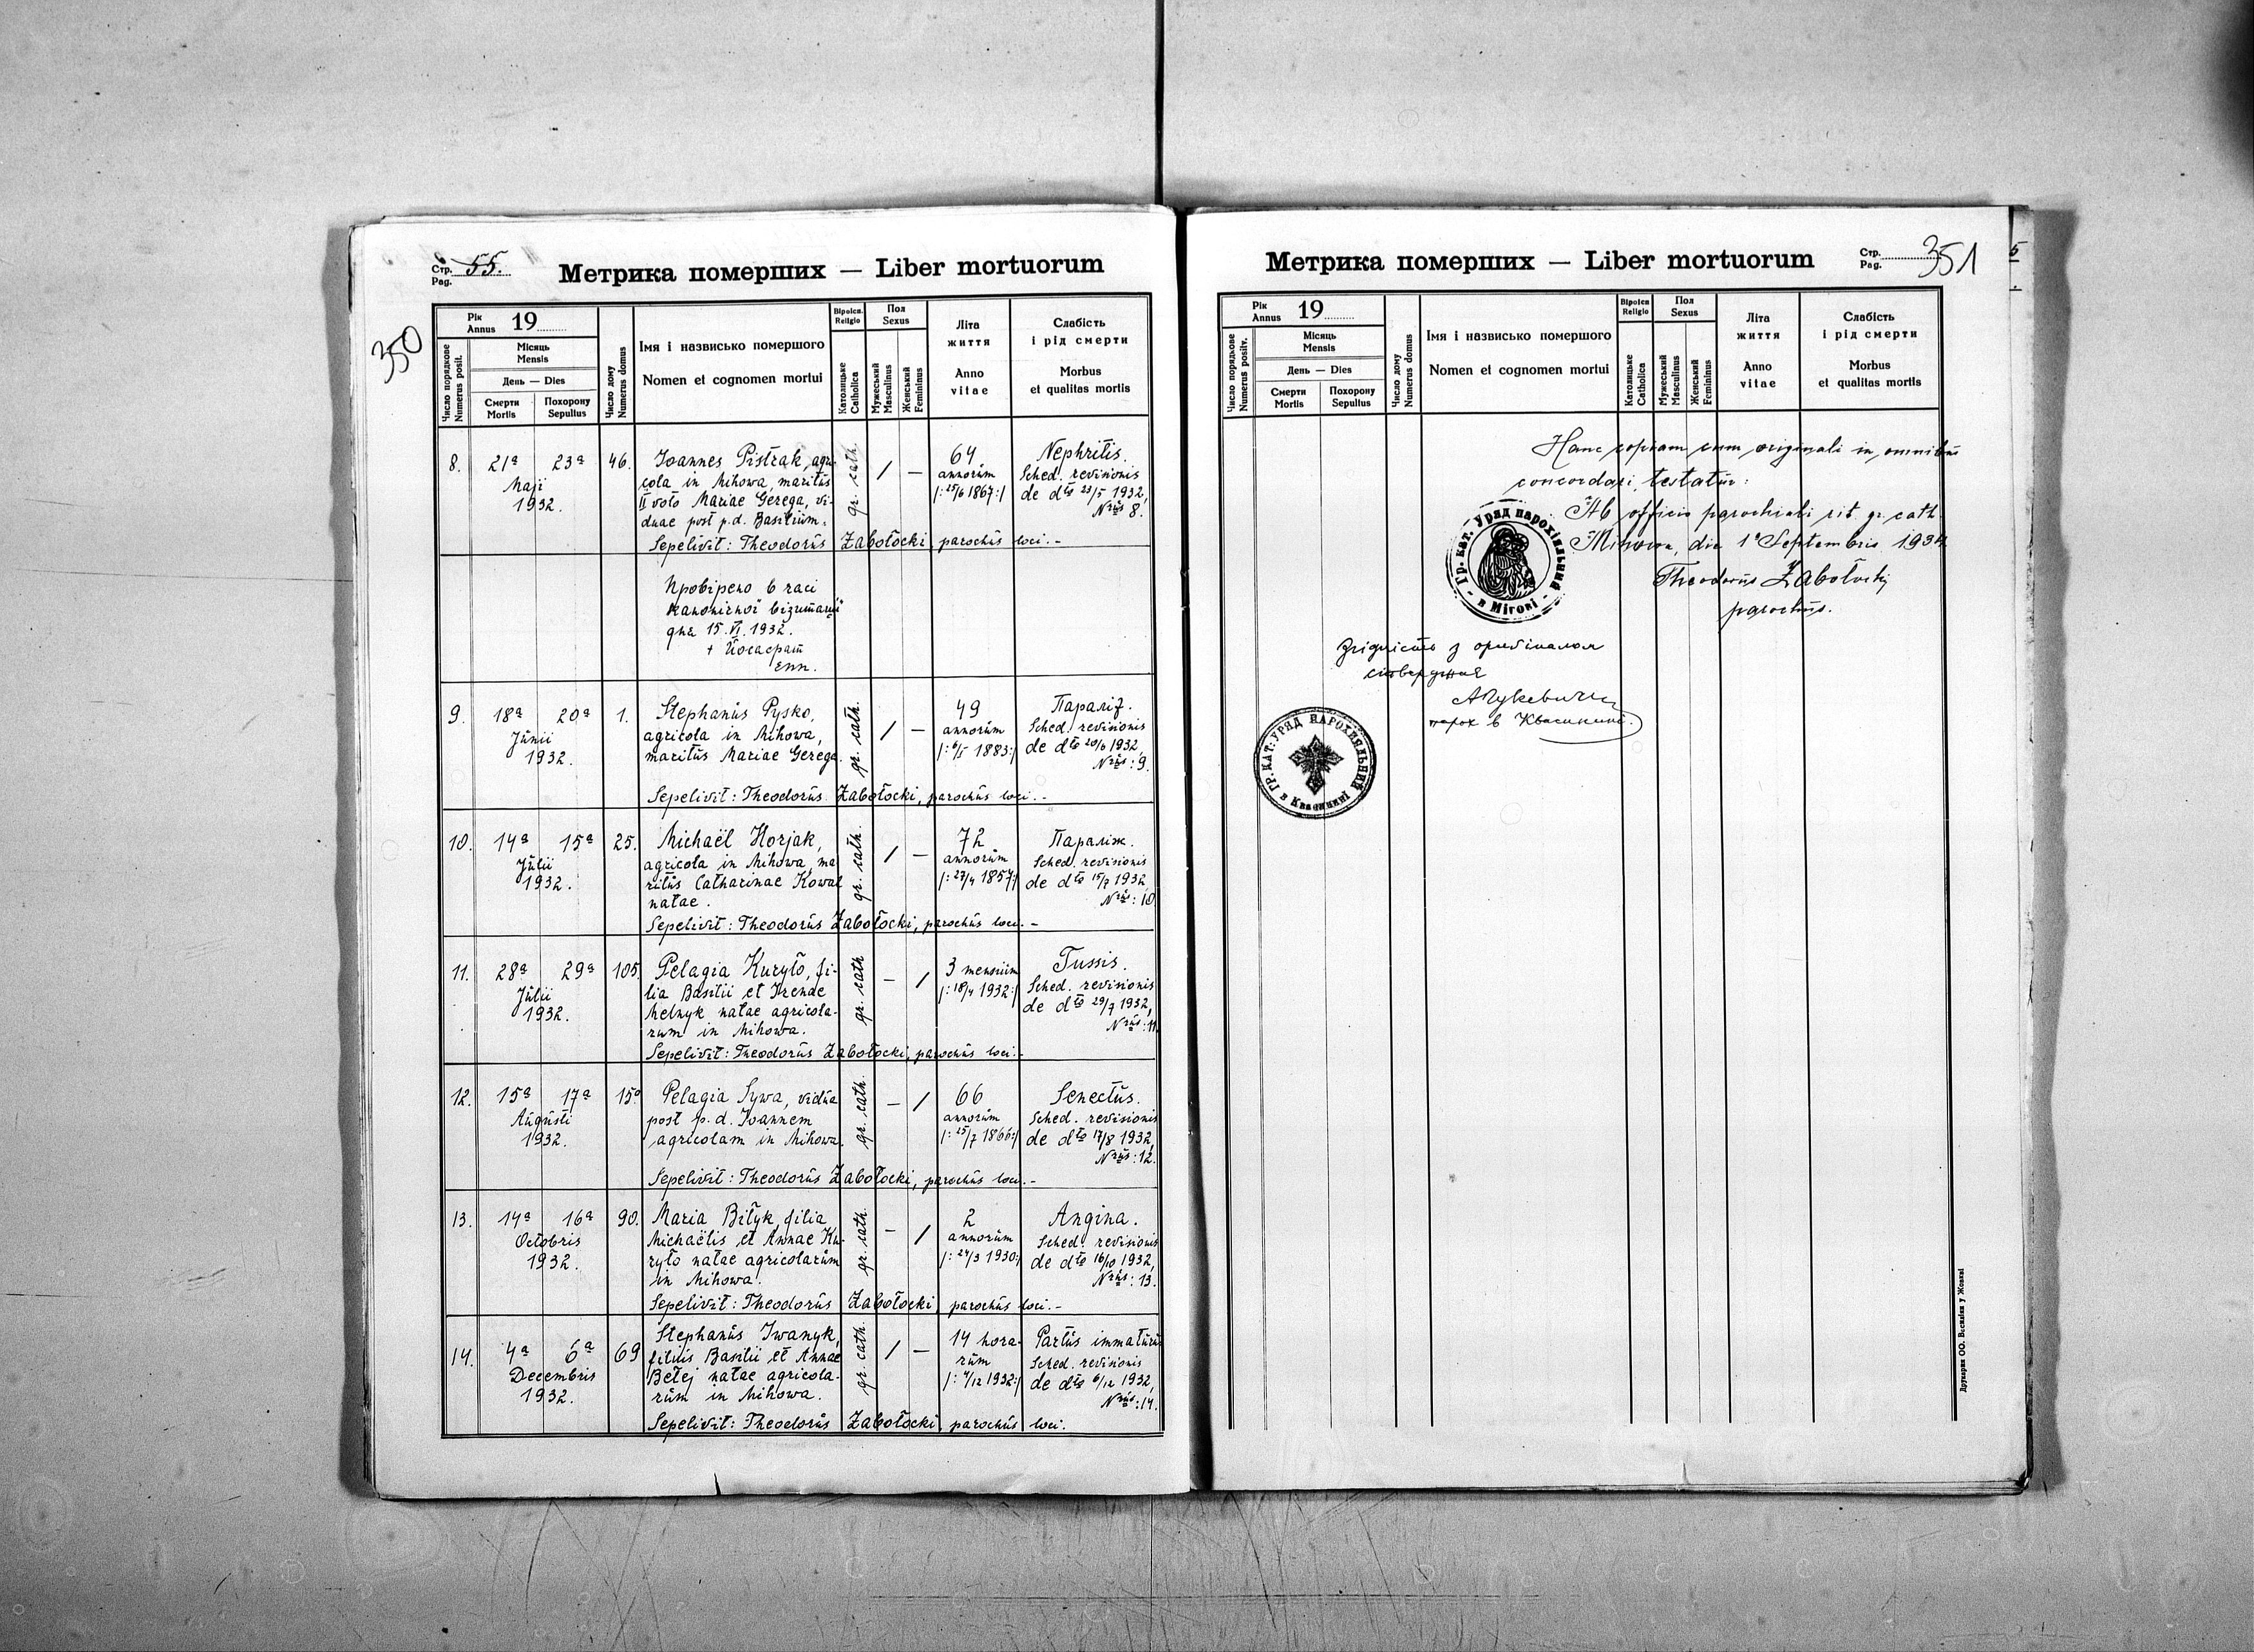 Стр. Pag. 55.
Метрика померших — Liber mortuorum
350
Рік Annus 19
Число порядкове Numerus posit.
Місяць Mensis
День — Dies
Смерти Mortis
Похорону Sepultus
Число дому Numerus domus
Імя і назвисько помершого
Nomen et cognomen mortui
Віроісп. Religio
Католицьке Catholica
Пол Sexus
Мужеський Masculinus
Женський Femininus
Літа життя
Anno vitae
Слабість і рід смерти
Morbus et qualitas mortis
8. 21ª 23ª 46. Joannes Pistrak, agri- gr. cath. / — 64 Nephritis.
Maji cola in Mihowa, maritus annorum Sched. revisionis
1932. II voto Mariae Gerega, vi- /: 25/6 1867:/ de dto 23/5 1932,
duae post p.d. Basilium. Nrus 8.
Sepelivit: Theodorus Zabołocki, parochus loci.-
Провірено в часі
канонічної візитації
дня 15.VI.1932.
+ Йосафат
еп.
9. 18ª 20ª 1. Stephanus Pysko, gr. cath. / — 49 Параліж.
Junii agricola in Mihowa, annorum Sched. revisionis
1932. maritus Mariae Gerega. 1883:/ de dto 20/6 1932,
Nrus: 9.
Sepelivit: Theodorus Zabołocki, parochus loci.-
10. 14ª 15ª 25. Michaël Horjak, gr. cath. / — 72 Параліж.
Julii agricola in Mihowa, ma annorum Sched. revisionis
1932. ritus Catharinae Kowal /: 27/4 1857:/ de dto 15/7 1932,
natae. Nrus: 10.
Sepelivit: Theodorus Zabołocki, parochus loci.-
11. 28ª 29ª 105. Pelagia Kuryło, fi- gr. cath — / 3 mensium Tussis.
Julii lia Basilii et Irenae /: 18/4 1932:/ Sched. revisionis
1932. Melnyk natae agricola- de dto 29/7 1932,
rum in Mihowa. Nrus: 11.
Sepelivit: Theodorus Zabołocki, parochus loci.-
12. 15ª 17ª Pelagia Sywa, vidua gr. cath. — / 66 Senectus.
Augusti post p.d. Joannem annorum Sched. revisionis
1932. agricolam in Mihowa. /: 25/7 1866:/ de dto 17/8 1932,
Nrus: 12.
Sepelivit: Theodorus Zabołocki, parochus loci.-
13. 14ª 16ª 90. Maria Biłyk, filia gr. cath. — / 2 Angina.
Octobris Michaëlis et Annae Ku- annorum Sched. revisionis
1932. ryło natae agricolarum 1930:/ de dto 16/10 1932,
in Mihowa. Nrus: 13.
Sepelivit: Theodorus Zabołocki, parochus loci.-
14. 4ª 6ª 69 Stephanus Iwanyk, gr. cath. / — 14 hora- Partus immaturus
Decembris filius Basilii et Annae rum Sched. revisionis
1932. Betej natae agricola- /: 4/12 1932:/ de dto 6/12 1932,
rum in Mihowa. Nrus: 14.
Sepelivit: Theodorus Zabołocki, parochus loci.
Метрика померших — Liber mortuorum
Стр. Pag. 351
Рік Annus 19
Число порядкове Numerus positv.
Місяць Mensis
День — Dies
Смерти Mortis
Похорону Sepultus
Число дому Numerus domus
Імя і назвисько помершого
Nomen et cognomen mortui
Віроісп Religio
Католицьке Catholica
Пол Sexus
Мужеський Masculinus
Женський Femininus
Літа життя
Anno vitae
Слабість і рід смерти
Morbus et qualitas mortis
Hanc copiam cum originali in omnibus
concordari, testatur:
Ab officio parochiali rit. gr. cath.
Mihowa, die 1ª Septembris
Theodorus Zabołocki
parochus.
Гр. кат. Уряд парохіяльний
- в Мігові -
Згідність з оригіналом
стверджує
парох в Квасинині.
ГР. КАТ. УРЯД ПАРОХІЯЛЬНИЙ
в Квасинині
Друкарня ОО. Василіян у Жовкві
5